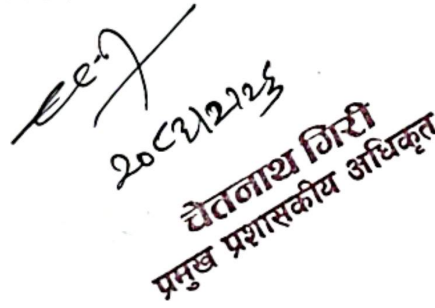 २०८३।२।२६
चेतनाथ गिरी
प्रमुख प्रशासकीय अधिकृत